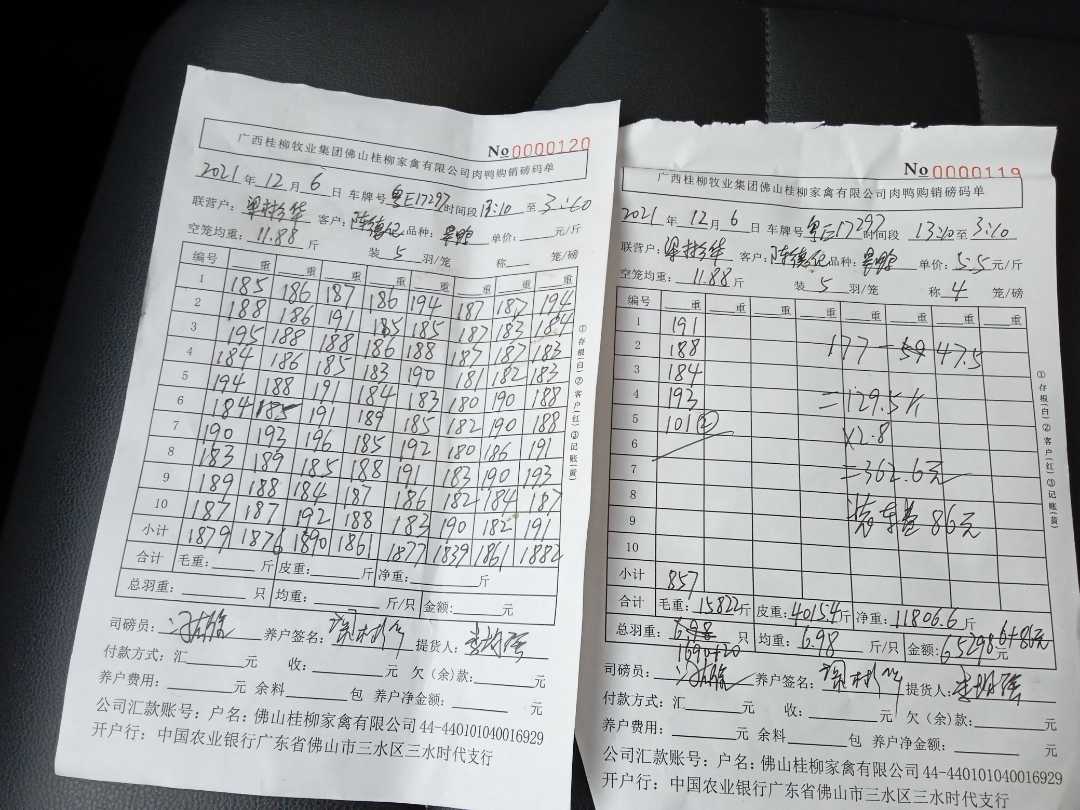 No 0000120
广西桂柳牧业集团佛山桂柳家禽有限公司肉鸭购销磅码单
2021年12月6日 车牌号粤E17297时间段13:10至3:10
联营户: 客户:陈德记品种: 单价:元/斤
空笼均重:11.88斤 装5羽/笼 称 笼/磅
编号 重 重 重 重 重 重 重 重
1 185 186 187 186 194 187 187 194
2 188 186 191 185 185 187 183 184
3 195 188 188 186 188 187 187 183
4 184 186 185 183 190 181 182 183
5 194 188 191 184 183 180 190 188
6 184 185 191 189 185 182 190 188
7 190 193 196 185 192 180 186 191
8 183 189 185 188 191 183 190 193
9 189 188 184 187 186 182 184 187
10 187 187 192 188 183 190 182 191
小计 1879 1876 1890 1861 1877 1839 1861 1882
合计 毛重:斤 皮重:斤 净重:斤
总羽重:只 均重:斤/只 金额:元
司磅员: 养户签名: 提货人:
付款方式:汇元 收:元 欠(余)款:元
养户费用:元 余料包 养户净金额:元
公司汇款账号:户名:佛山桂柳家禽有限公司44-440101040016929
开户行:中国农业银行广东省佛山市三水区三水时代支行
①存根(白)②客户(红)③记账(黄)
No 0000119
广西桂柳牧业集团佛山桂柳家禽有限公司肉鸭购销磅码单
2021年12月6日 车牌号粤E17297时间段13:10至3:10
联营户: 客户:陈德记品种: 单价:5.5元/斤
空笼均重:11.88斤 装5羽/笼 称4笼/磅
编号 重 重 重 重 重 重 重 重
1 191
2 188 177-47.5
3 184
4 193 =129.5斤
5 101② ×2.8
6
7 =362.6元
8
9 86元
10
小计 857
合计 毛重:15822斤 皮重:4015.4斤 净重:11806.6斤
总羽重:698只 均重:6.98斤/只 金额:65298.6+86元元
1690+20
司磅员: 养户签名: 提货人:
付款方式:汇元 收:元 欠(余)款:元
养户费用:元 余料包 养户净金额:元
公司汇款账号:户名:佛山桂柳家禽有限公司44-440101040016929
开户行:中国农业银行广东省佛山市三水区三水时代支行
①存根(白)②客户(红)③记账(黄)